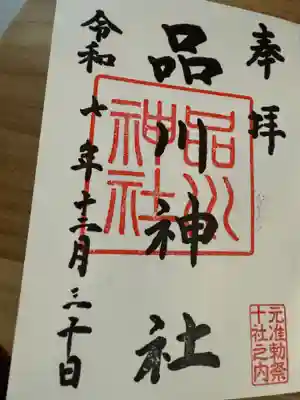 奉拝
品川神社
令和七年十二月三十日
品川
神社
元准勅祭
十社之内